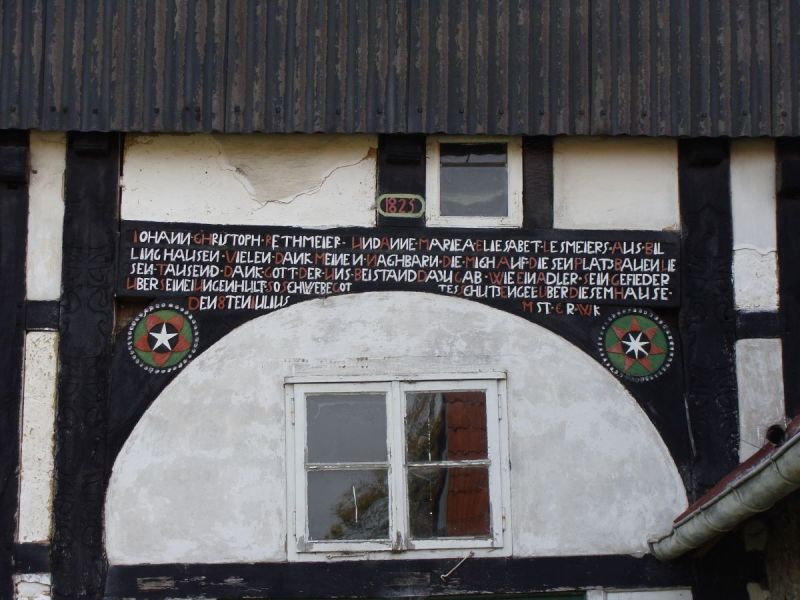 1825
IOHANN·CHRISTOPH·RETHMEIER·UND ANNE·MARIEA·ELIESABET·LESMEIERS·AUS·BIL
LINGHAUSEN·VIELEN·DANK·MEINEN·NAGHBARN·DIE·MICH AUF·DIESEN PLATS·BAUEN LIE
SEN·TAUSEND·DANK·GOTT·DER·UNS·BEISTAND DAZU GAB·WIE EIN ADLER·SEIN GEFIEDER
ÜBER SEINE IUNGEN HULT·SO SCHWEBE GOT TES SCHUTS ENGEL ÜBER DIESEM HAUSE·
DEN 8TEN IULIUS M ST·C R·W K